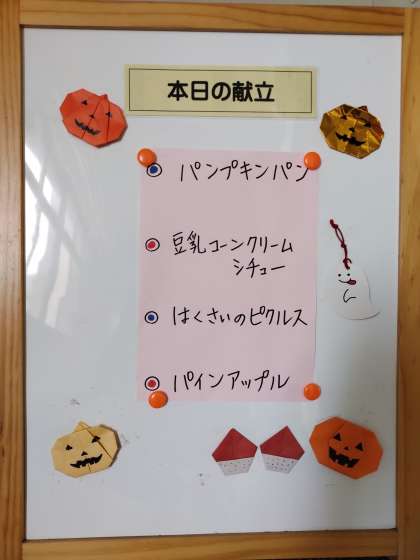 本日の献立
パンプキンパン
豆乳コーンクリーム
シチュー
はくさいのピクルス
パインアップル